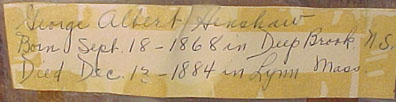 George Albert Henshaw
Born Sept. 18 - 1868 in Deep Brook N.S.
Died Dec. 12 - 1884 in Lynn Mass